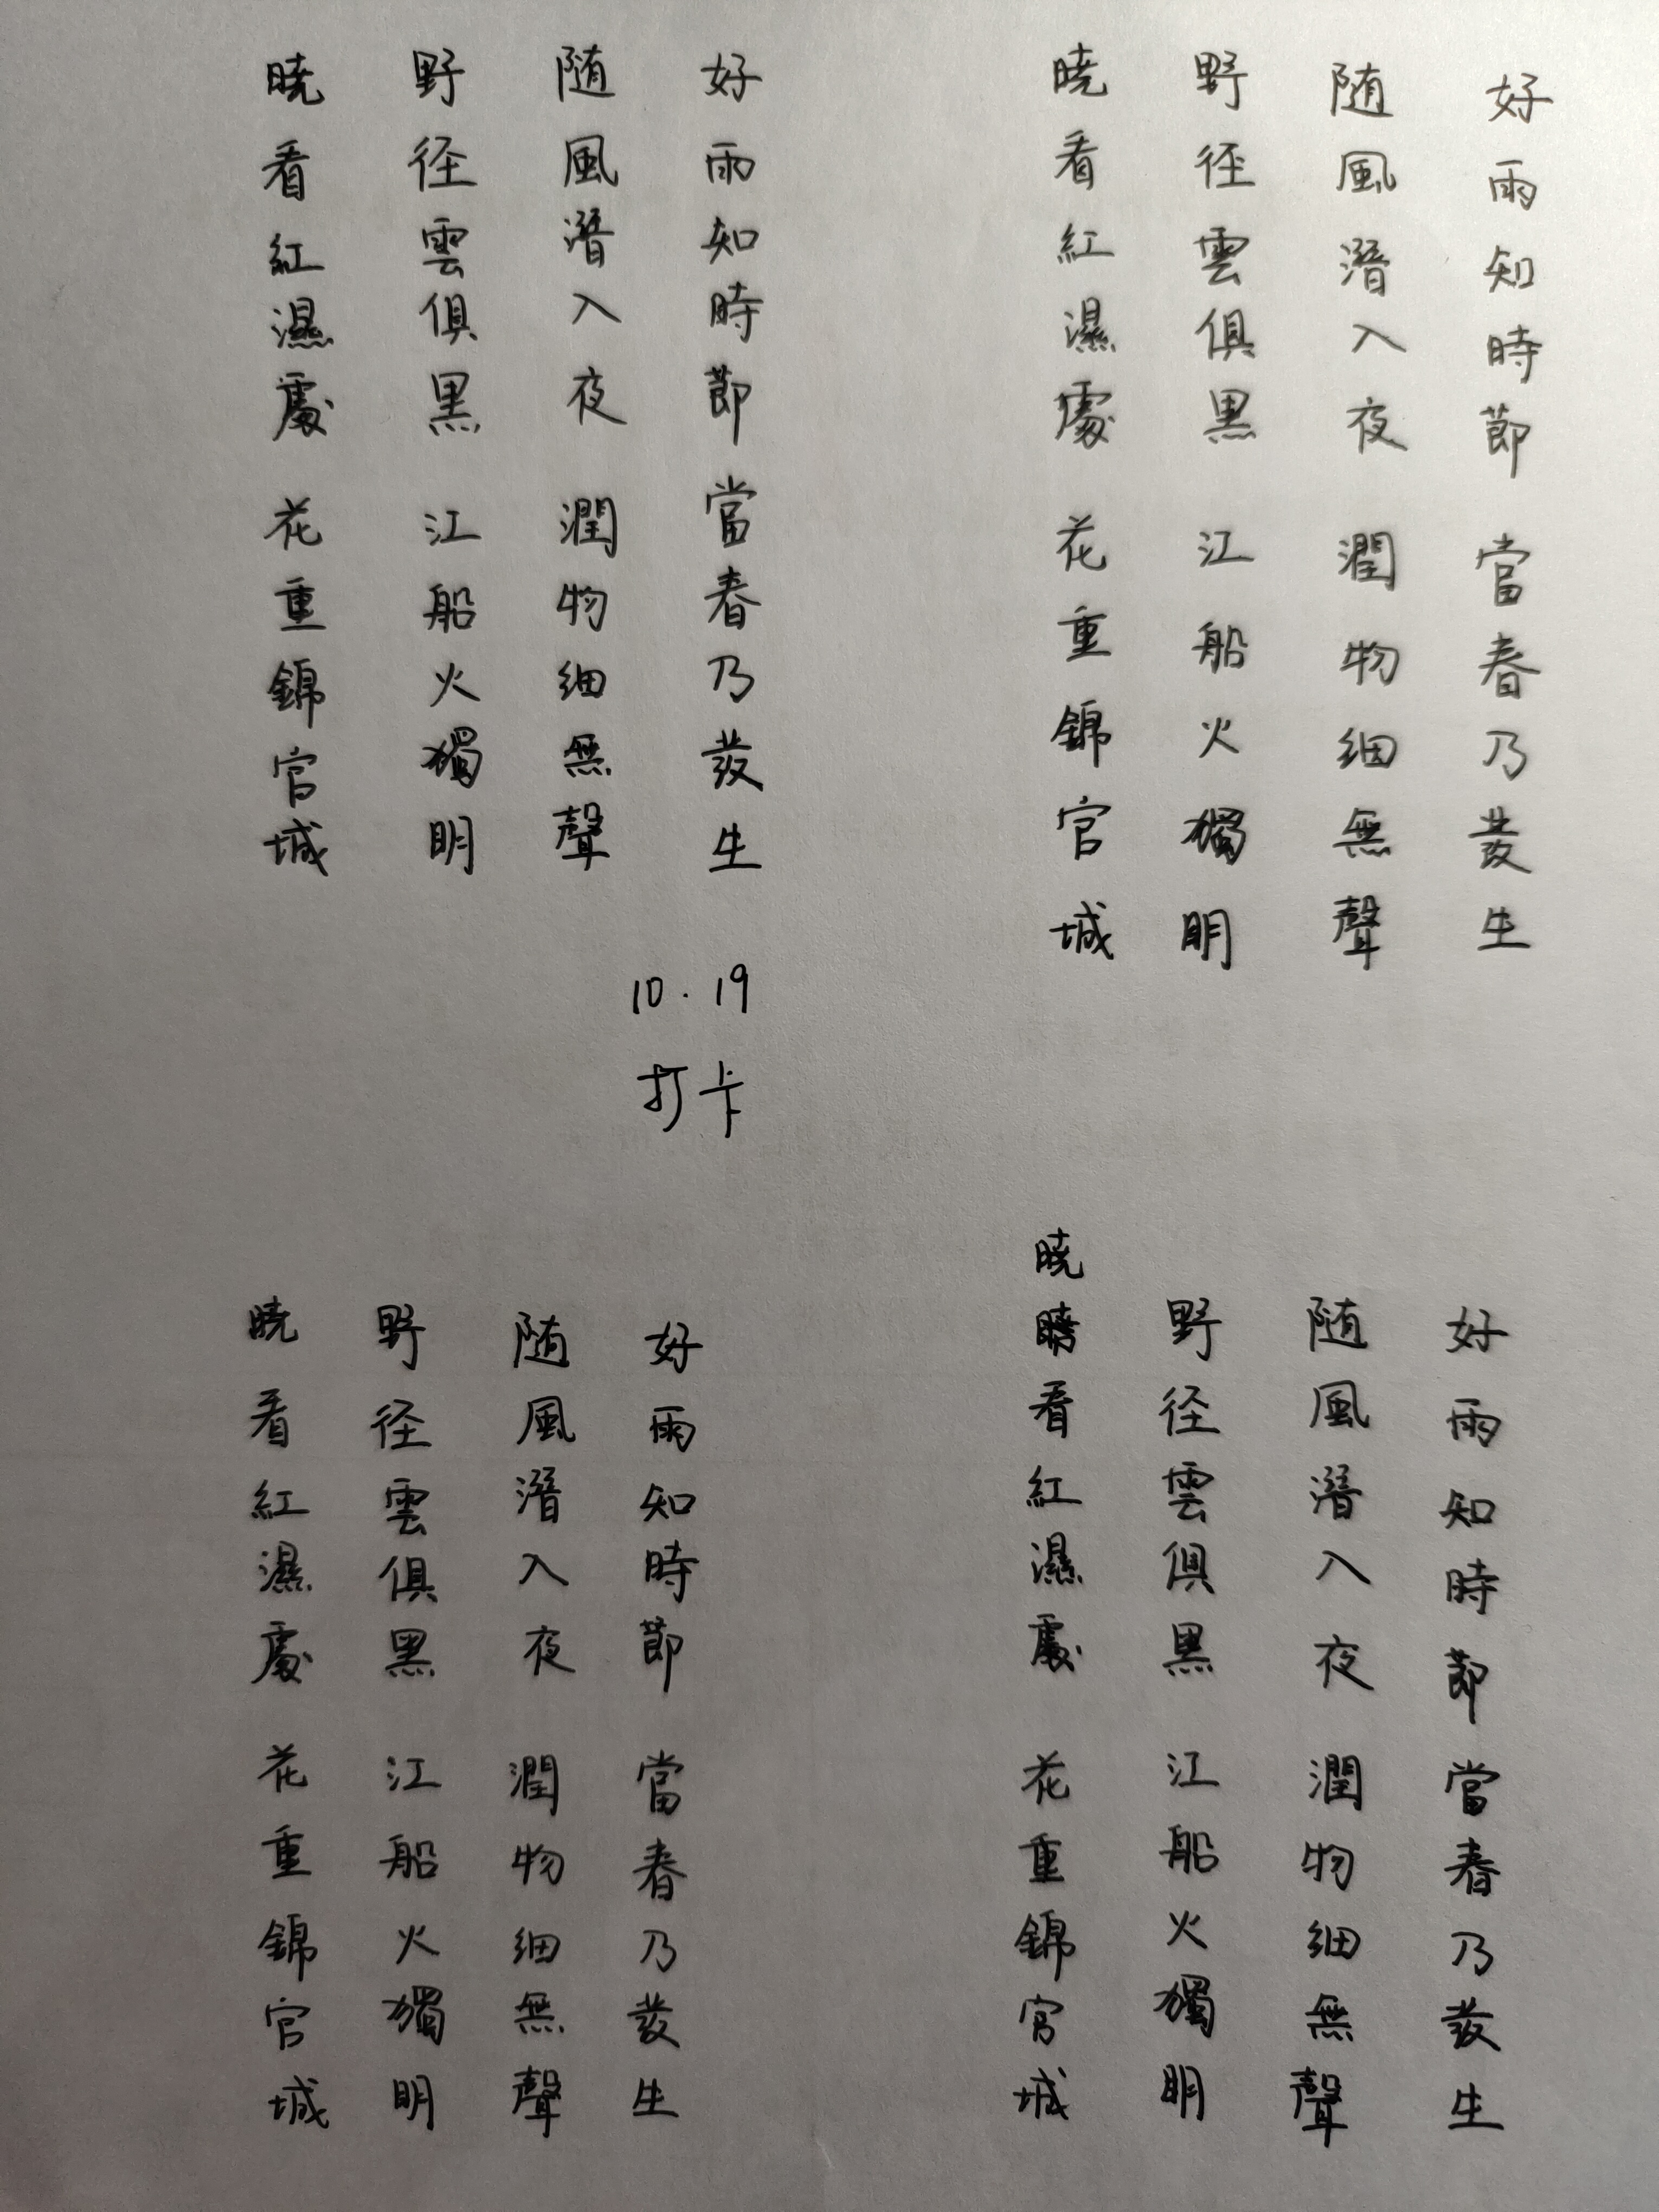 好雨知時節 當春乃發生
随風潛入夜 潤物細無聲
野径雲俱黑 江船火獨明
曉看紅濕處 花重錦官城
好雨知時節 當春乃發生
随風潛入夜 潤物細無聲
野径雲俱黑 江船火獨明
曉看紅濕處 花重錦官城
10.19
打卡
好雨知時節 當春乃發生
随風潛入夜 潤物細無聲
野径雲俱黑 江船火獨明
曉看紅濕處 花重錦官城
好雨知時節 當春乃發生
随風潛入夜 潤物細無聲
野径雲俱黑 江船火獨明
曉看紅濕處 花重錦官城